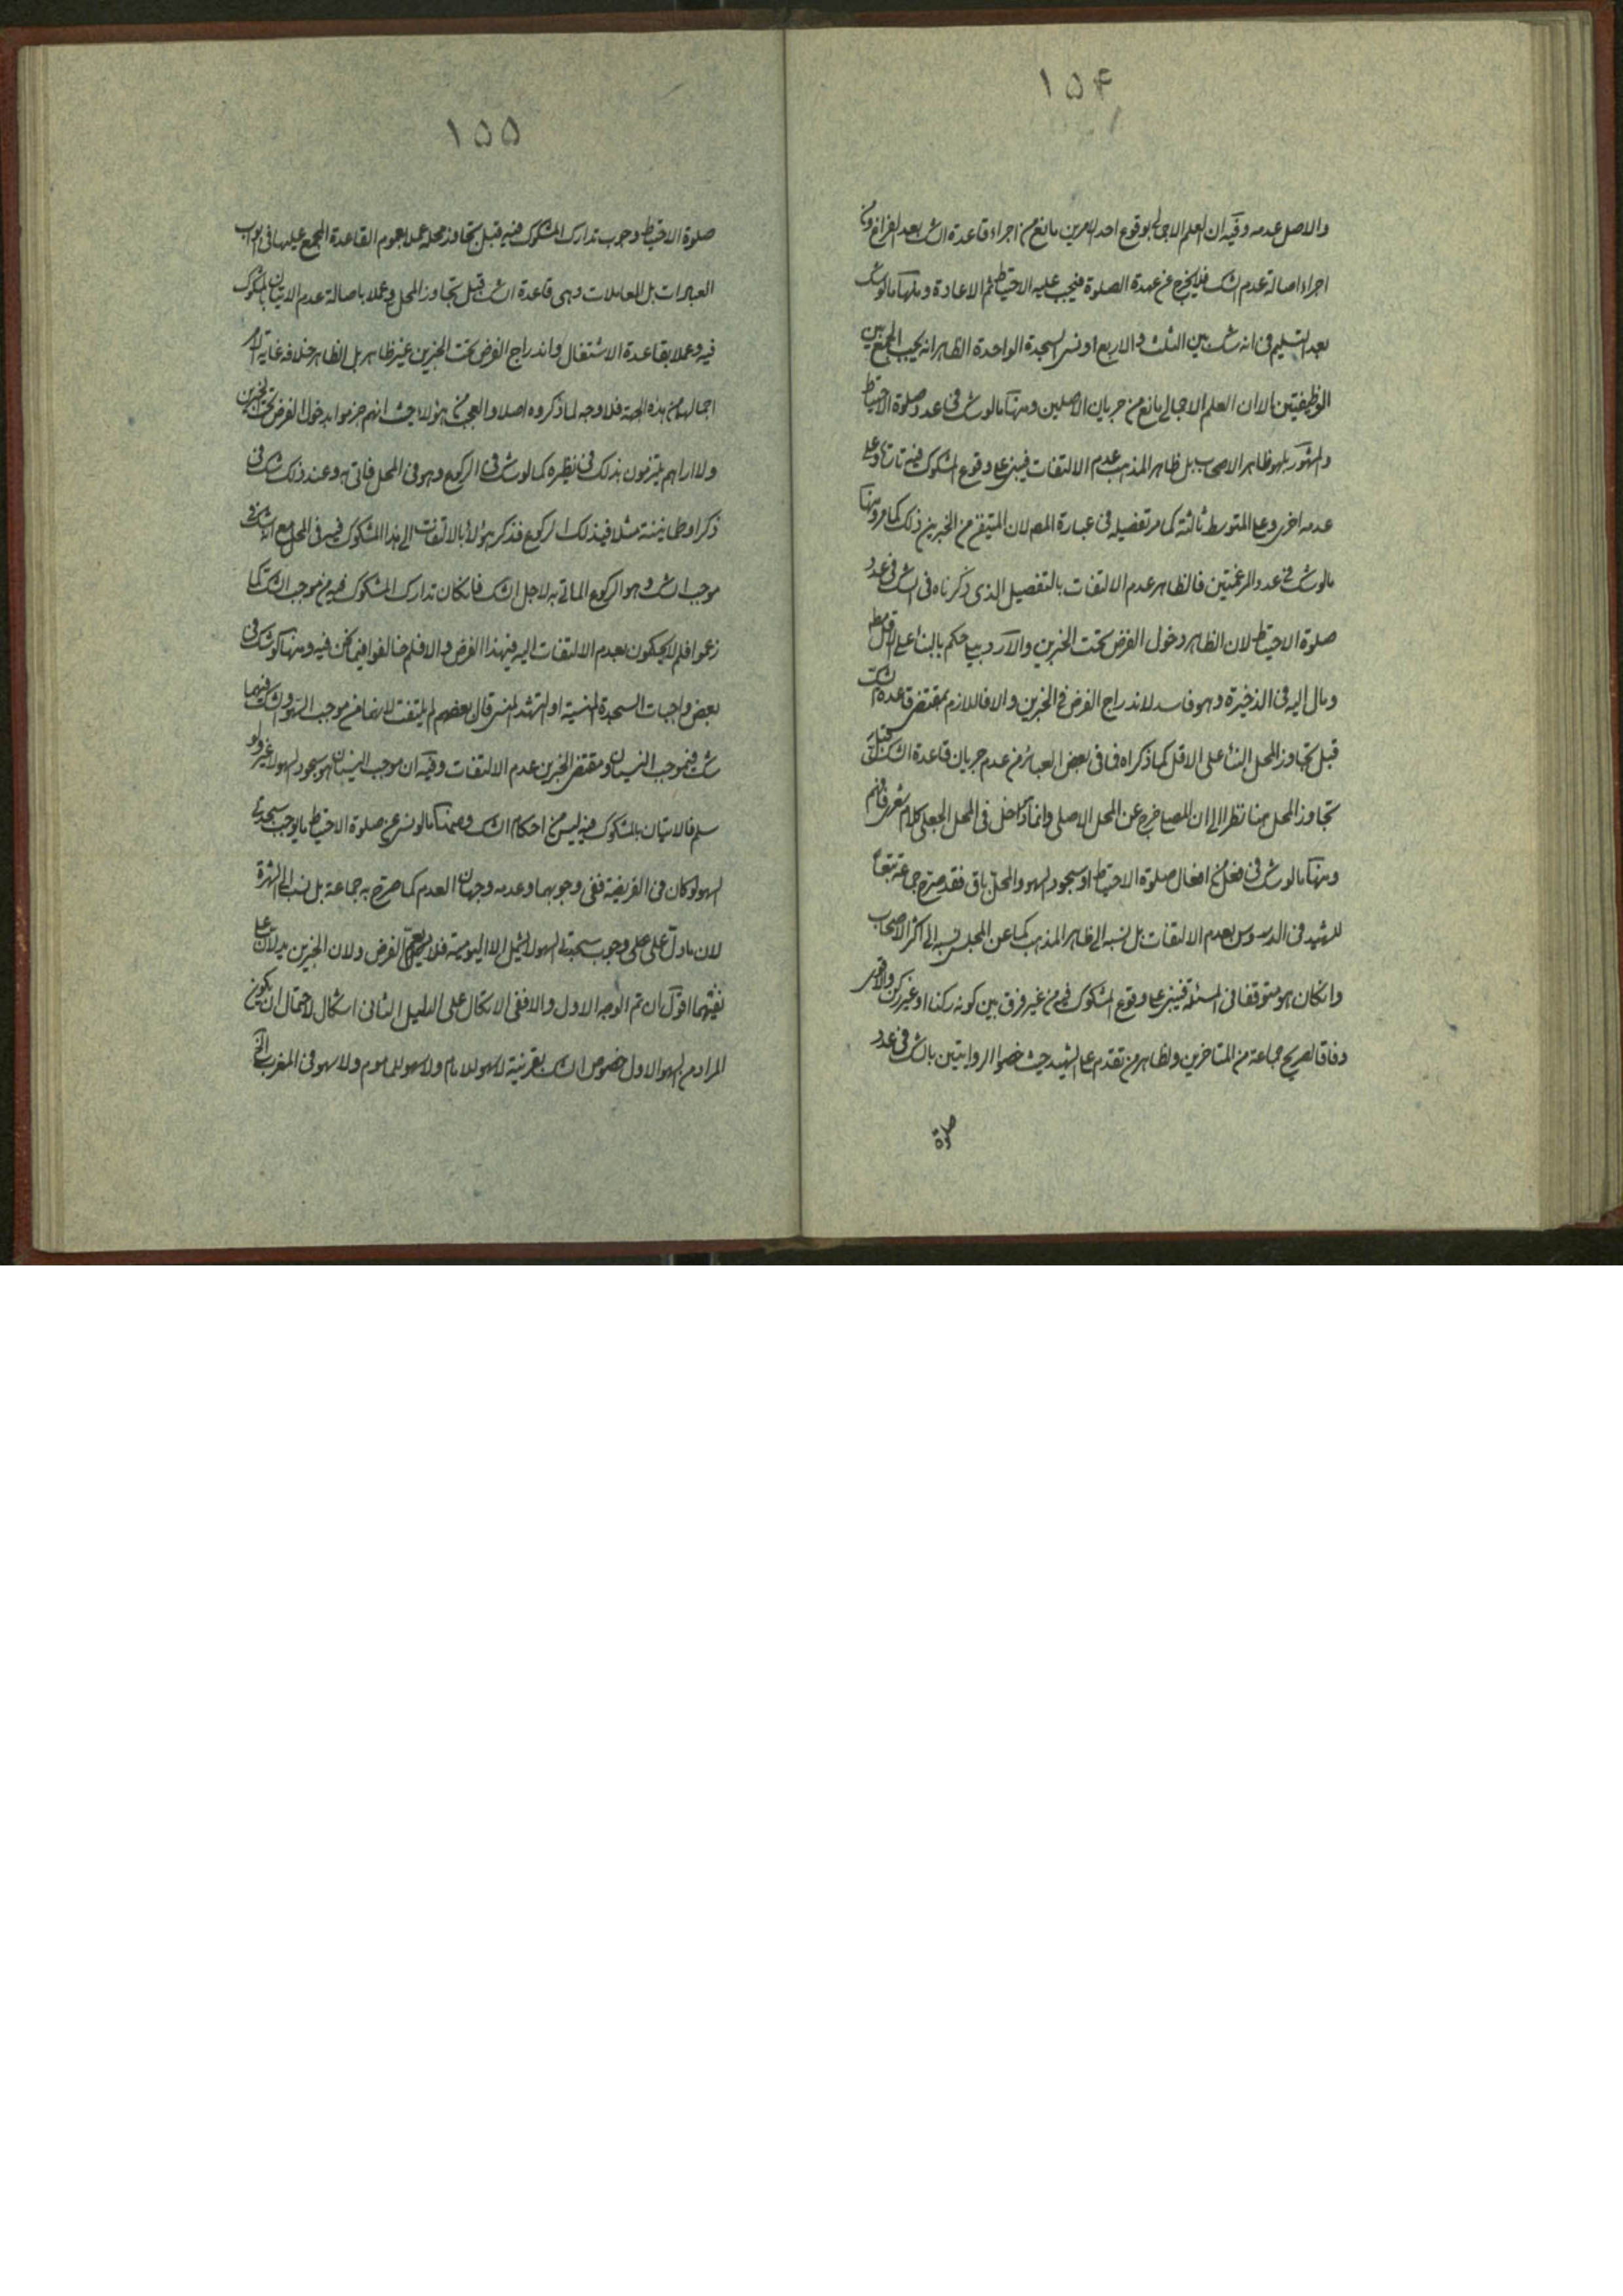 ١٥۴
والاصل عدمه وفيه ان العلم الاجمالي بوقوع احد الامرين مانع من اجراء قاعدة الشك بعد الفراغ ومن
اجراء اصالة عدم الشك فلا يخرج عن عهدة الصلوة فيجب عليه الاحتياط ثم الاعادة ومنها ما لو شك
بعد التسليم في انه شك بين الثلث والاربع او نسي السجدة الواحدة الظاهر انه يجب الجمع بين
الوظيفتين لان العلم الاجمالي مانع من جريان الاصلين ومنها ما لو شك في عدد صلوة الاحتياط
والمشهور بل هو ظاهر الاصحاب بل ظاهر المذهب عدم الالتفات فيبني على وقوع المشكوك فيه تارة وعلى
عدمه اخرى وعلى المتوسط ثالثة كما مر تفصيله في عبارة المص لان المتيقن من الخبرين ذلك كما مر ومنها
ما لو شك في عدد المرغمتين فالظاهر عدم الالتفات بالتفصيل الذي ذكرناه في الشك في عدد
صلوة الاحتياط لان الظاهر دخول الفرض تحت الخبرين والاردبيلي حكم بالبناء على الاقل
ومال اليه في الذخيرة وهو فاسد لاندراج الفرض في الخبرين والا فاللازم بمقتضى قاعدة الشك
قبل تجاوز المحل البناء على الاقل كما ذكراه فما في بعض العبائر من عدم جريان قاعدة الشك قبل
تجاوز المحل هنا نظرا الى ان المصلي خرج عن المحل الاصلي وانما دخل في المحل الجعلي كلام شعري فافهم
ومنها ما لو شك في فعل من افعال صلوة الاحتياط او سجود السهو والمحل باق فقد صرح جماعة تبعا
للشهيد في الدروس بعدم الالتفات بل نسبه الى ظاهر المذهب كما عن المجلسي نسبه الى اكثر الاصحاب
وان كان هو متوقفا في المسئلة فيبني على وقوع المشكوك فيه من غير فرق بين كونه ركنا او غير ركن والاقوى
وفاقا لصريح جماعة من المتاخرين ولظاهر من تقدم على الشهيد حيث خصوا الروايتين بالشك في عدد
صلوة
١٥٥
صلوة الاحتياط وجوب تدارك المشكوك فيه قبل تجاوز محله عملا بعموم القاعدة المجمع عليها في ابواب
العبادات بل المعاملات وهي قاعدة الشك قبل تجاوز المحل وعملا باصالة عدم الاتيان بالمشكوك
فيه وعملا بقاعدة الاشتغال واندراج الفرض تحت الخبرين غير ظاهر بل الظاهر خلافه غاية الامر
اجمالهما من هذه الجهة فلا وجه لما ذكروه اصلا والعجب من هؤلاء حيث انهم جزموا بدخول الفرض تحت الخبرين
ولا اراهم يلتزمون بذلك في نظيره كما لو شك في الركوع وهو في المحل فاتى به وعند ذلك شك في
ذكر او طمانينة مثلا في ذلك الركوع فذكر هؤلاء بالالتفات الى هذا المشكوك فيه في المحل مع انه شك في
موجب الشك وهو الركوع الماتي به لاجل الشك فان كان تدارك المشكوك فيه من موجب الشك كما
زعموا فلم لا يحكمون بعدم الالتفات اليه في هذا الفرض والا فلم خالفوا فيما نحن فيه ومنها لو شك في
بعض واجبات السجدة المنسية او التشهد المنسي قال بعضهم لم يلتفت لانهما من موجب السهو والشك فيهما
شك في موجب النسيان ومقتضى الخبرين عدم الالتفات وفيه ان موجب النسيان هو سجود السهو لا غير ولو
سلم فالاتيان بالمشكوك فيه ليس من احكام الشك ومنها ما لو نسي في صلوة الاحتياط ما يوجب سجدتي
السهو لو كان في الفريضة ففي وجوبهما وعدمه وجهان العدم كما صرح به جماعة بل نسب الى الشهرة
لان ما دل على وجوب سجدتي السهو لا يشمل الا اليومية فلا يعم الفرض ولان الخبرين يدلان على
نفيهما اقول ان تم الوجه الاول والا ففي الاتكال على الدليل الثاني اشكال لاحتمال ان يكون
المراد من السهو الاول خصوص الشك بقرينة لا سهو للامام ولا سهو للماموم ولا سهو في المغرب الخ